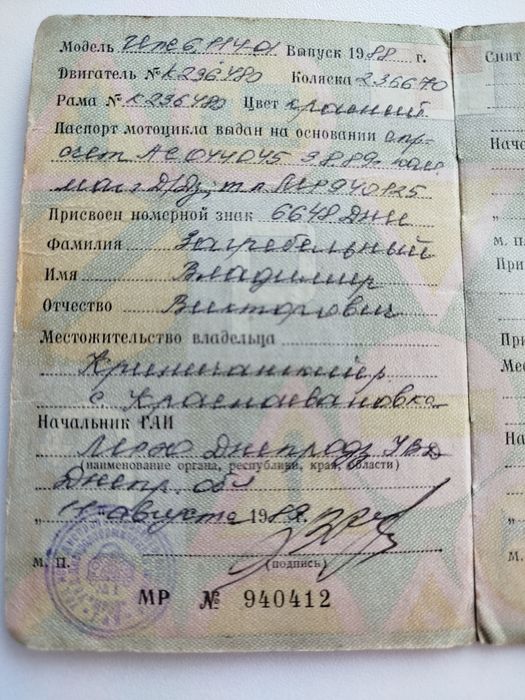 Модель Иж 6.114 01 Выпуск 1988 г.
Двигатель № К236480 Коляска 236670
Рама № К236480 Цвет красный
Паспорт мотоцикла выдан на основании спр-
счет АС 044045 3.8.89г.
маг
Присвоен номерной знак 6648 Дни
Фамилия Загребельный
Имя Владимир
Отчество Викторович
Местожительство владельца
с.
Начальник ГАИ
Днепродз УВД
(наименование органа, республики, края, области)
Днепр. обл
„ августа 1989
м. п. (подпись)
МР № 940412
Снят
Нача
„
м. п.
При
При
Мес
На
„